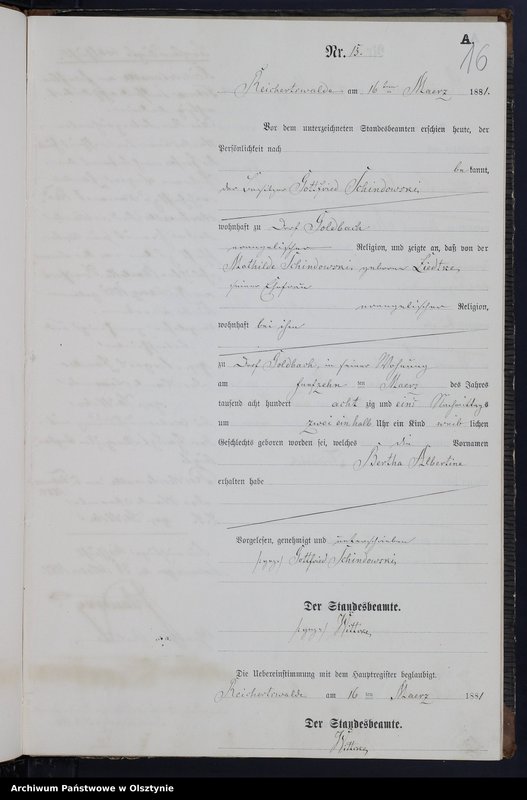 A.
16
Nr. 15.
Reichertswalde am 16 ten Maerz 1881.
Vor dem unterzeichneten Standesbeamten erschien heute, der
Persönlichkeit nach
bekannt,
der Besitzer Gottfried Schindowski,
wohnhaft zu Dorf Goldbach
evangelischer Religion, und zeigte an, daß von der
Mathilde Schindowski, geborene
seiner Ehefrau
evangelischer Religion,
wohnhaft bei ihm
zu Dorf Goldbach, in seiner Wohnung
am fünfzehn ten Maerz des Jahres
tausend acht hundert achtzig und eins Nachmittags
um zwei einhalb Uhr ein Kind weiblichen
Geschlechts geboren worden sei, welches die Vornamen
Bertha Albertine
erhalten habe
Vorgelesen, genehmigt und unterschrieben
(gez.) Gottfried Schindowski,
Der Standesbeamte.
(gez.)
Die Uebereinstimmung mit dem Hauptregister beglaubigt.
Reichertswalde am 16 ten Maerz 1881
Der Standesbeamte.
Archiwum Państwowe w Olsztynie